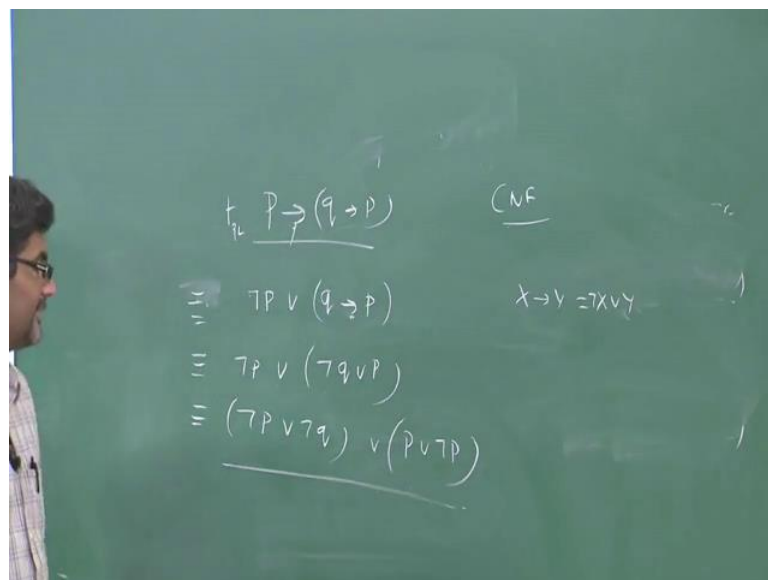 ⊢PL P → (q → P)
CNF
≡ ¬P ∨ (q → P)
X → Y = ¬X ∨ Y
≡ ¬P ∨ (¬q ∨ P)
≡ (¬P ∨ ¬q) ∨ (P ∨ ¬P)